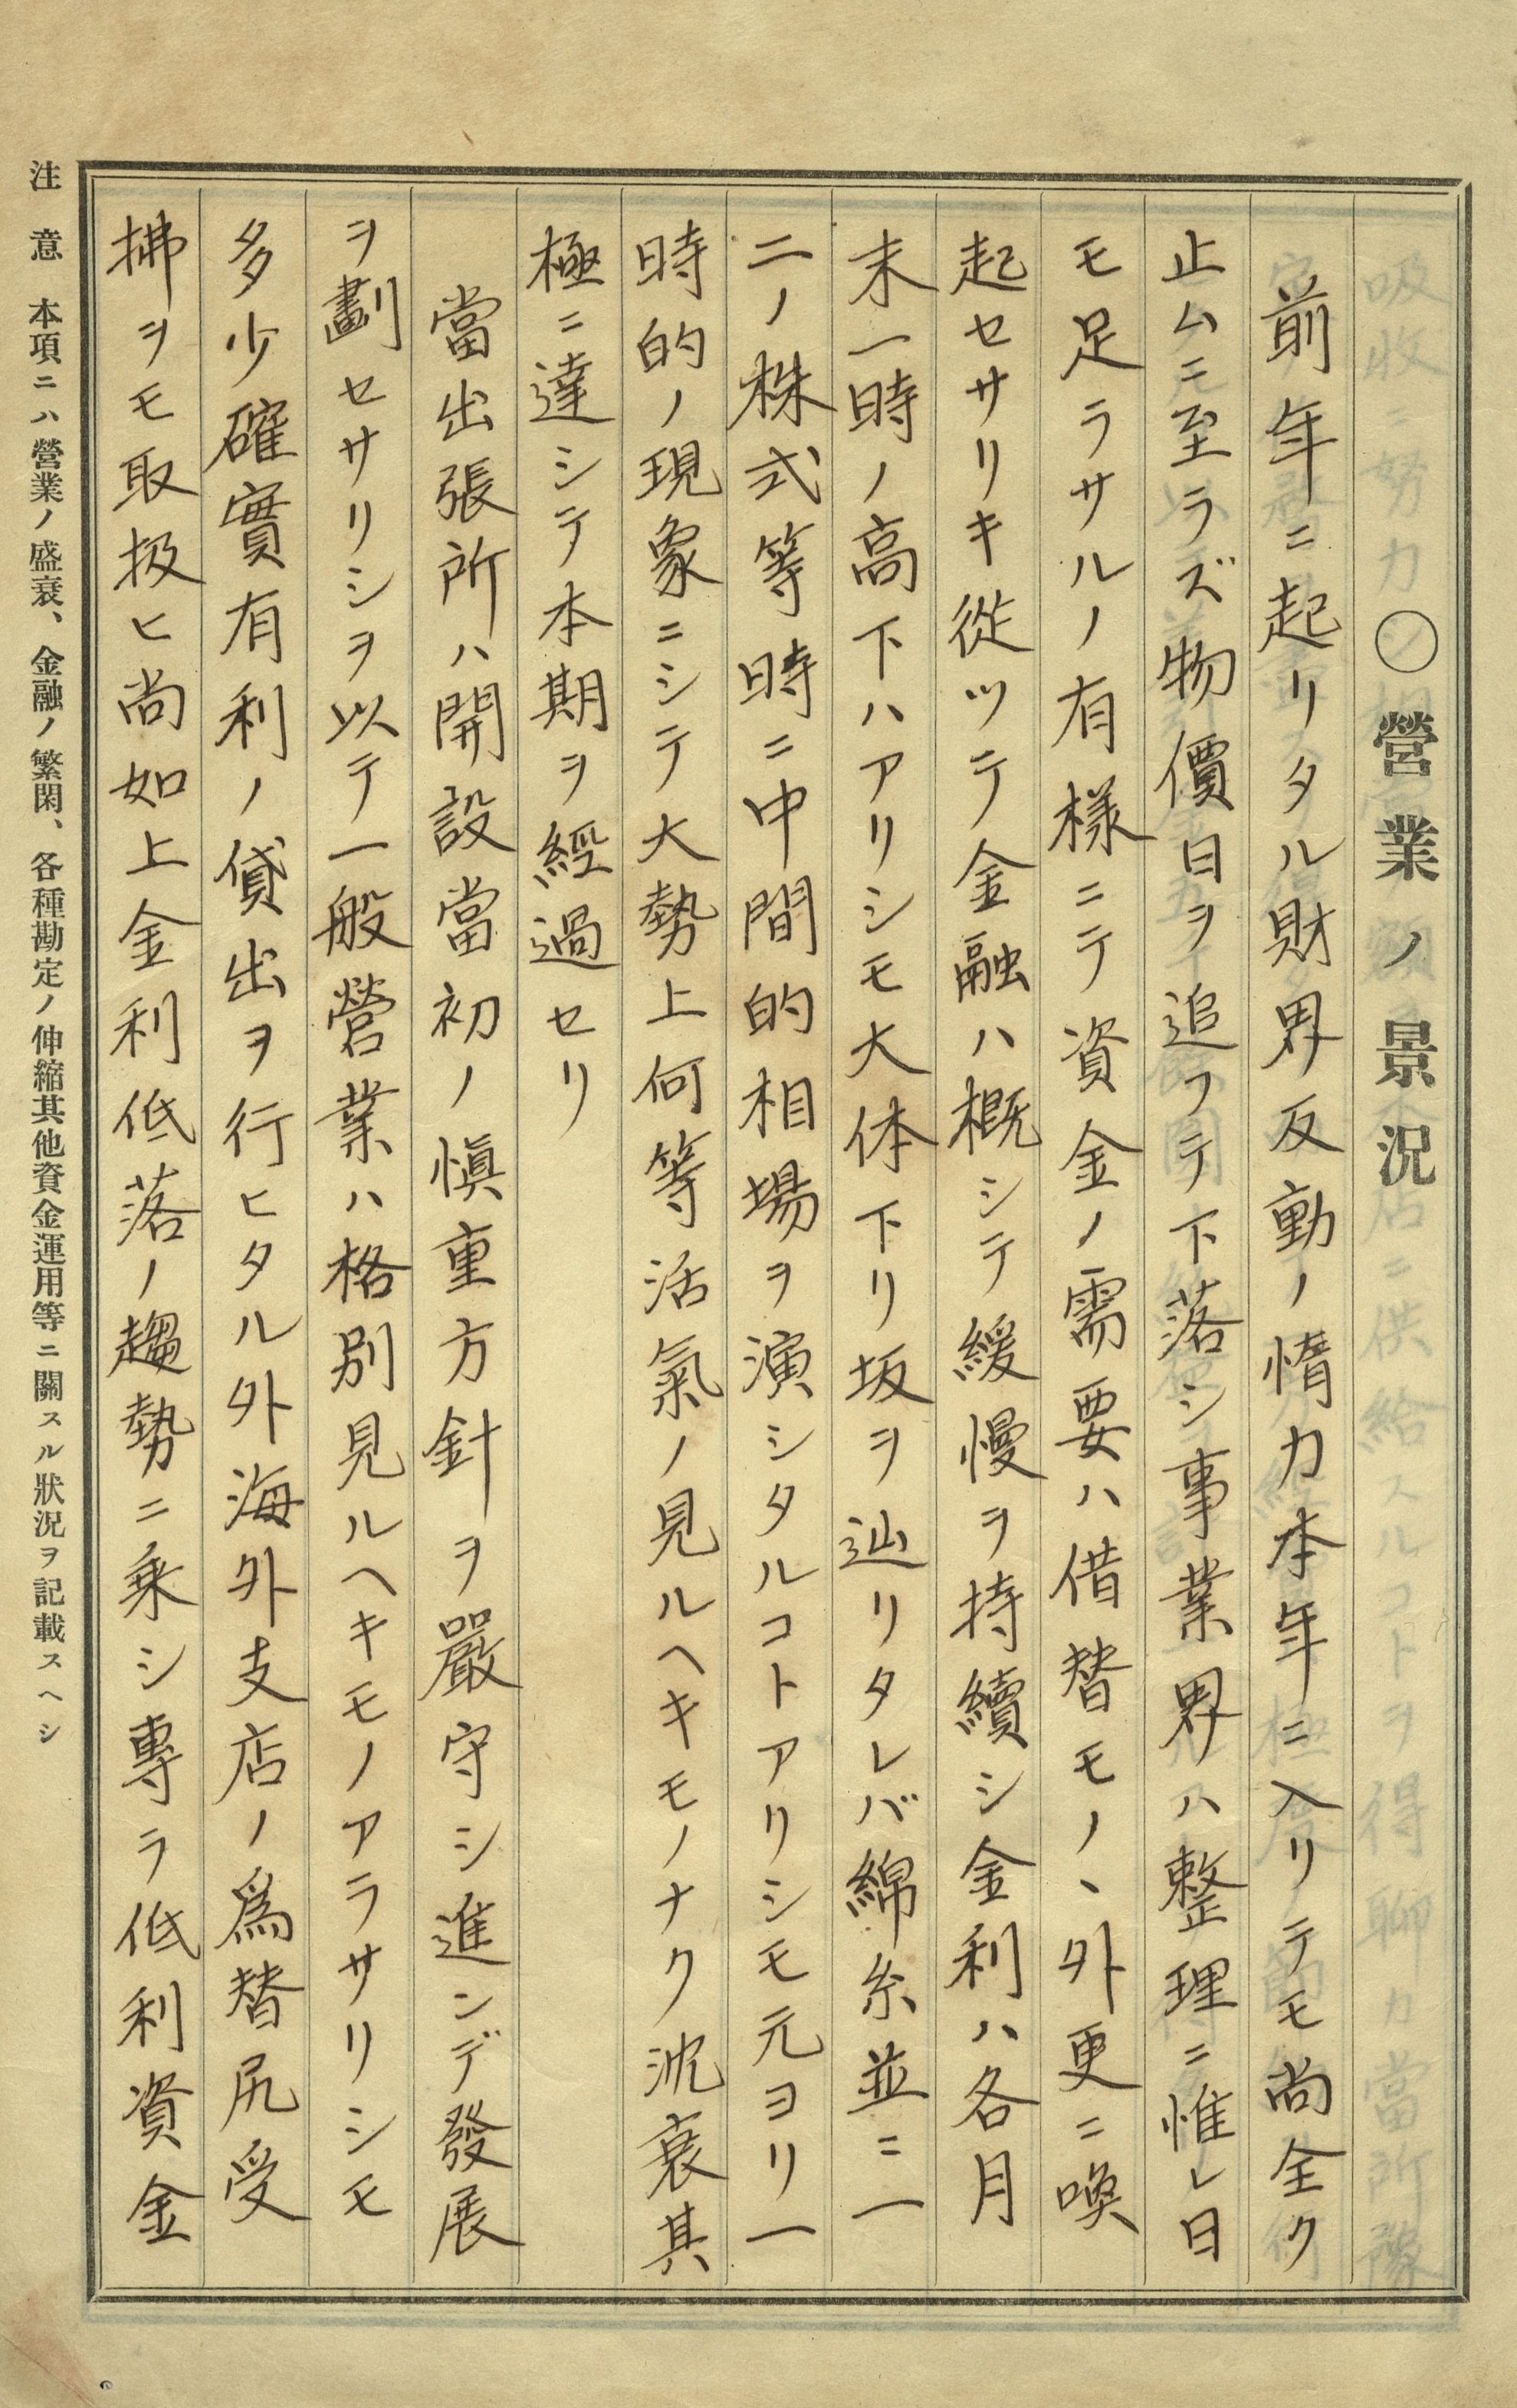 〇營業ノ景況
前年ニ起リタル財界反動ノ惰力本年ニ入リテモ尚全ク
止ムニ至ラズ物價日ヲ追フテ下落シ事業界ハ整理ニ惟レ日
モ足ラサルノ有樣ニテ資金ノ需要ハ借替モノヽ外更ニ喚
起セサリキ從ツテ金融ハ概シテ緩慢ヲ持續シ金利ハ各月
末一時ノ高下ハアリシモ大体下リ坂ヲ辿リタレバ綿糸並ニ一
二ノ株式等時ニ中間的相場ヲ演シタルコトアリシモ元ヨリ一
時的ノ現象ニシテ大勢上何等活氣ノ見ルヘキモノナク沈衰其
極ニ達シテ本期ヲ經過セリ
當出張所ハ開設當初ノ愼重方針ヲ嚴守シ進ンデ發展
ヲ劃セサリシヲ以テ一般營業ハ格別見ルヘキモノアラサリシモ
多少確實有利ノ貸出ヲ行ヒタル外海外支店ノ爲替尻受
拂ヲモ取扱ヒ尚如上金利低落ノ趨勢ニ乘シ專ラ低利資金
注意 本項ニハ營業ノ盛衰、金融ノ繁閑、各種勘定ノ伸縮其他資金運用等ニ關スル狀況ヲ記載スヘシ